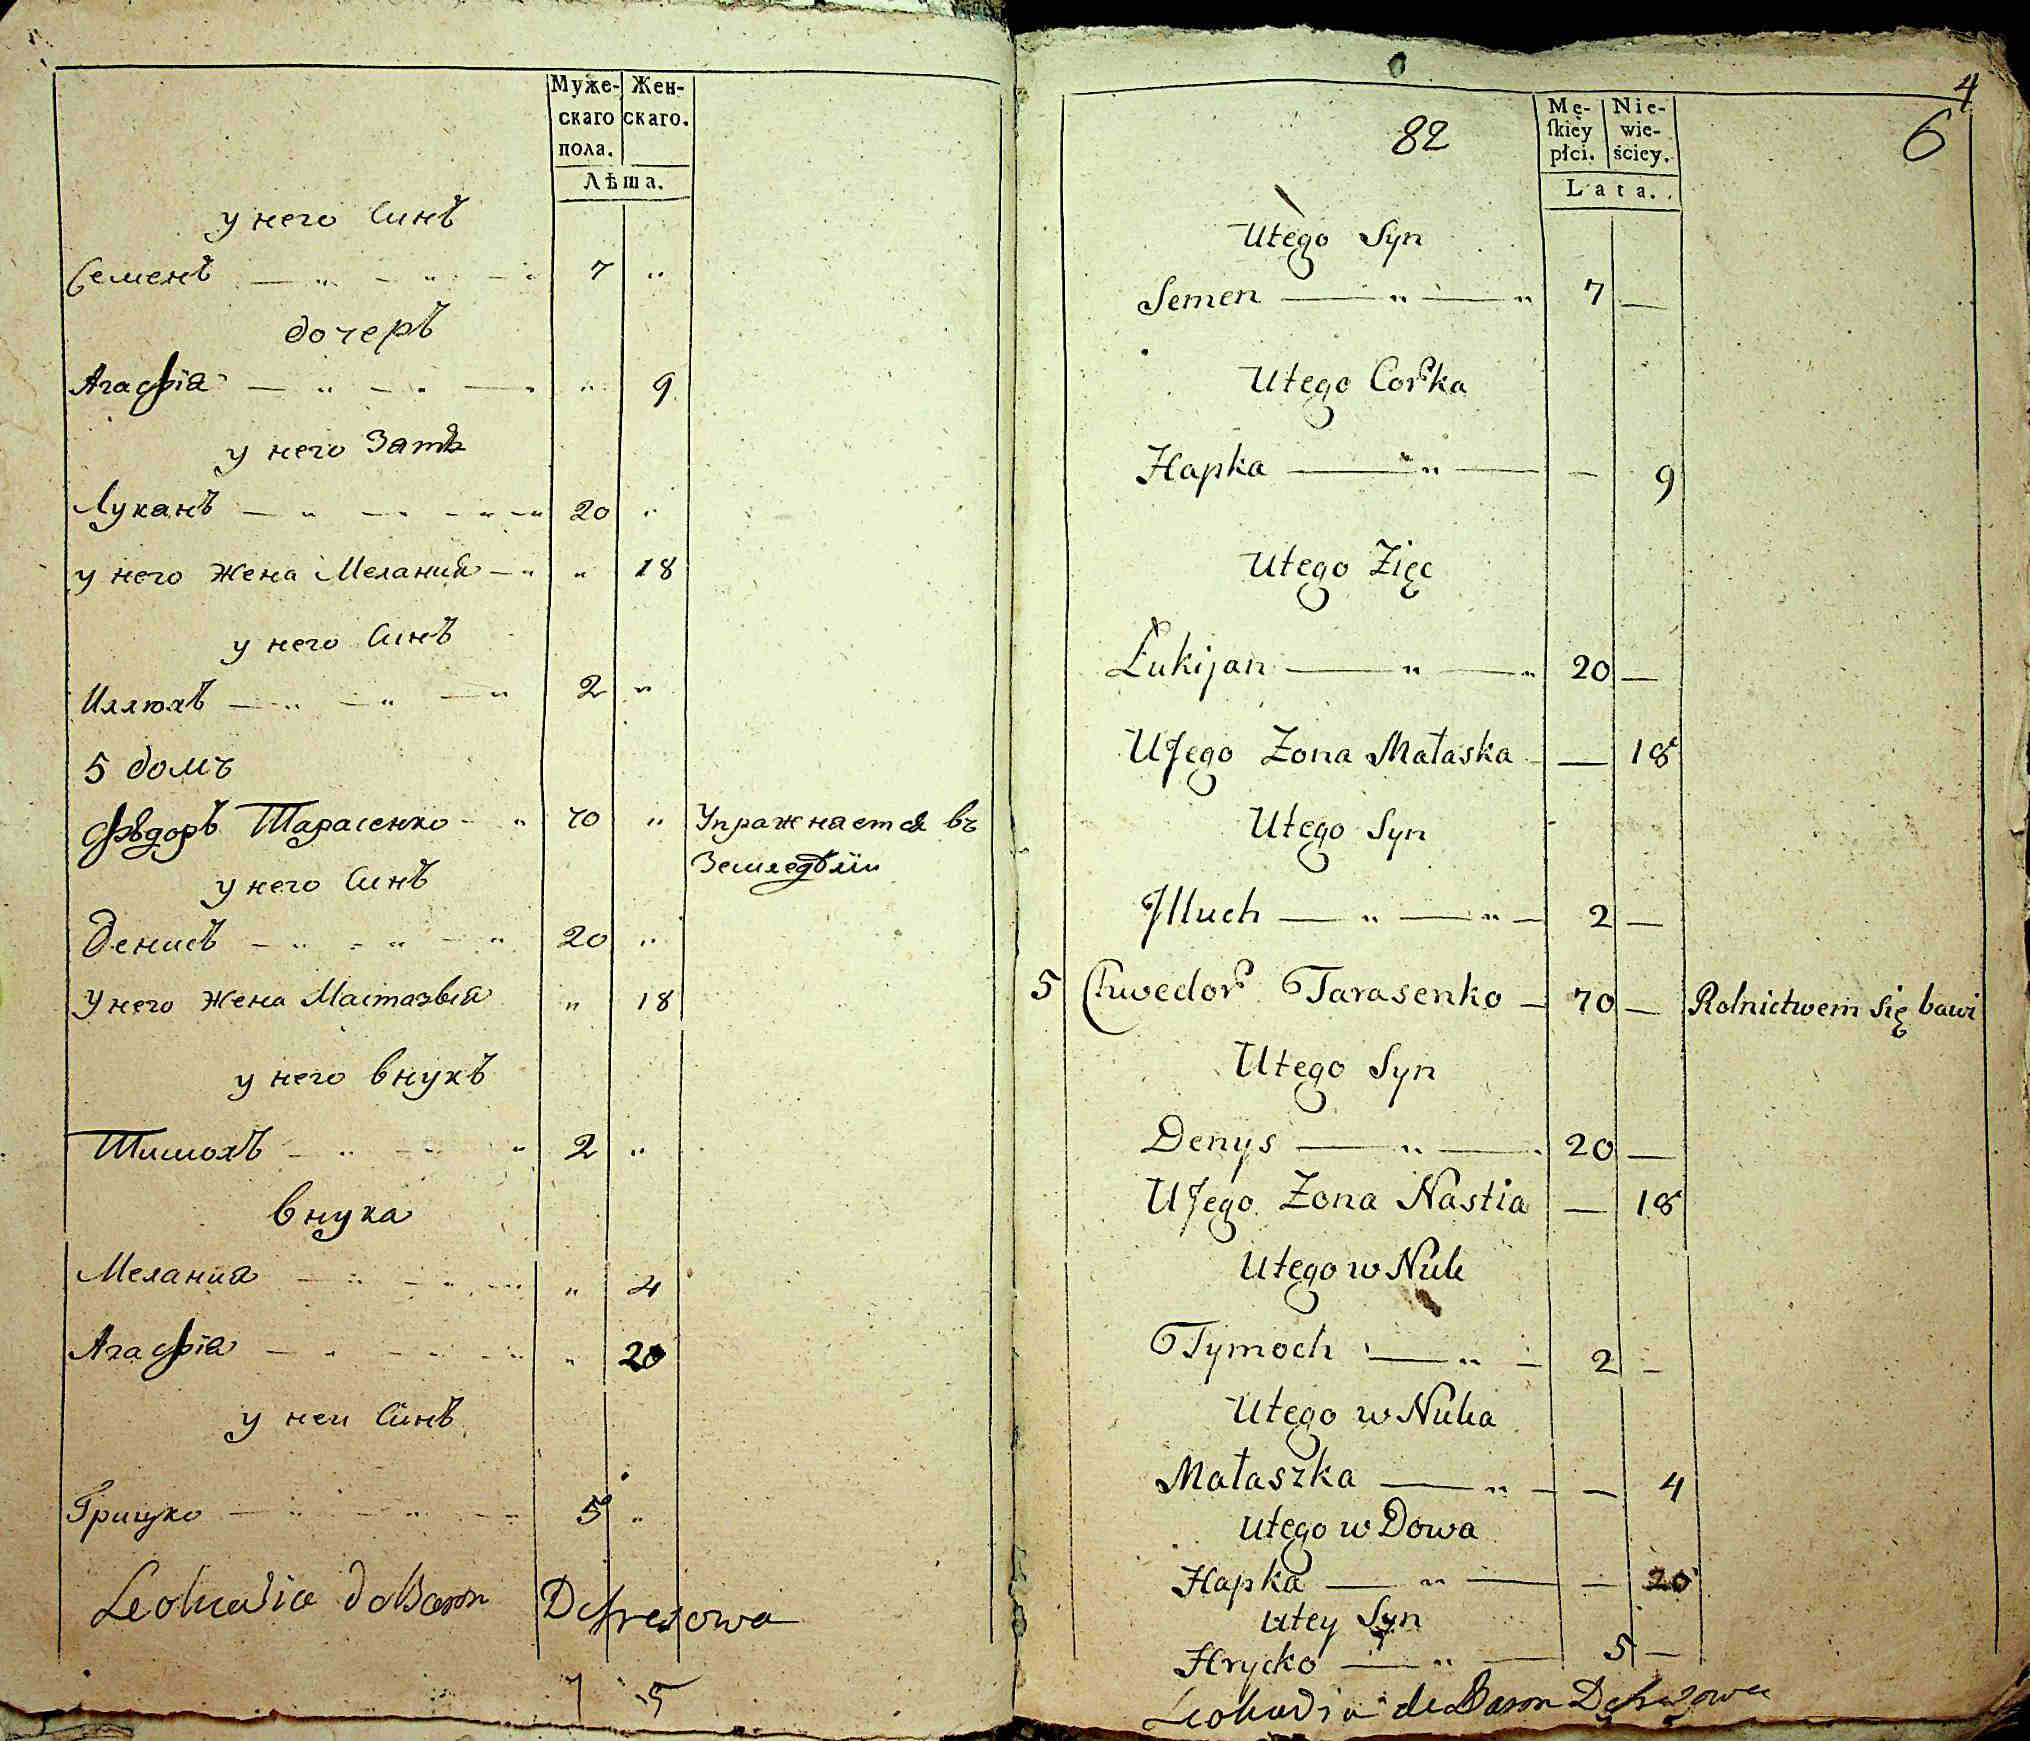 Муже- Жен-
скаго скаго.
пола.
Лѣта.
у него Синъ
Семенъ — „ — „ — „ 7 „
дочеръ
Агафія — „ — „ — „ „ 9
у него Затъ
Луканъ — „ — „ — „ — „ 20 „
у него жена Мелания — „ „ 18
у него Синъ
Иллюхъ — „ — „ — „ 2 „
5 домъ
Фѣдоръ Тарасенко — „ 70 „ Упражнается въ
Земледѣліи
у него Синъ
Денисъ — „ — „ — „ 20 „
У него жена „ 18
у него внукъ
Тимохъ — „ — „ 2 „
внука
Мелания — „ — „ — „ „ 4
Агафія — „ — „ — „ „ 20
у неи Синъ
Грицко — „ — „ — „ 5 „
Leokadia de Baron Defresowa
7 5
4
82 6
Mę- Nie-
ſkiey wie-
płci. ściey.
Lata.
Utego Syn
Semen — „ — „ 7 —
Utego Corka
Hapka — „ — — 9
Utego Zięc
Łukijan — „ — „ 20 —
UJego Zona Małaska — 18
Utego Syn
Jlluch — „ — „ — 2 —
5 Chwedor Tarasenko — 70 — Rolnictwem się bawi
Utego Syn
Denys — „ — 20 —
UJego Zona Nastia — 18
Utego w Nuk
Tymoch — „ — 2 —
Utego w Nuka
Małaszka — „ — — 4
Utego w Dowa
Hapka — „ — — 20
Utey Syn
Hrycko — „ — 5 —
Leokadia de Baron